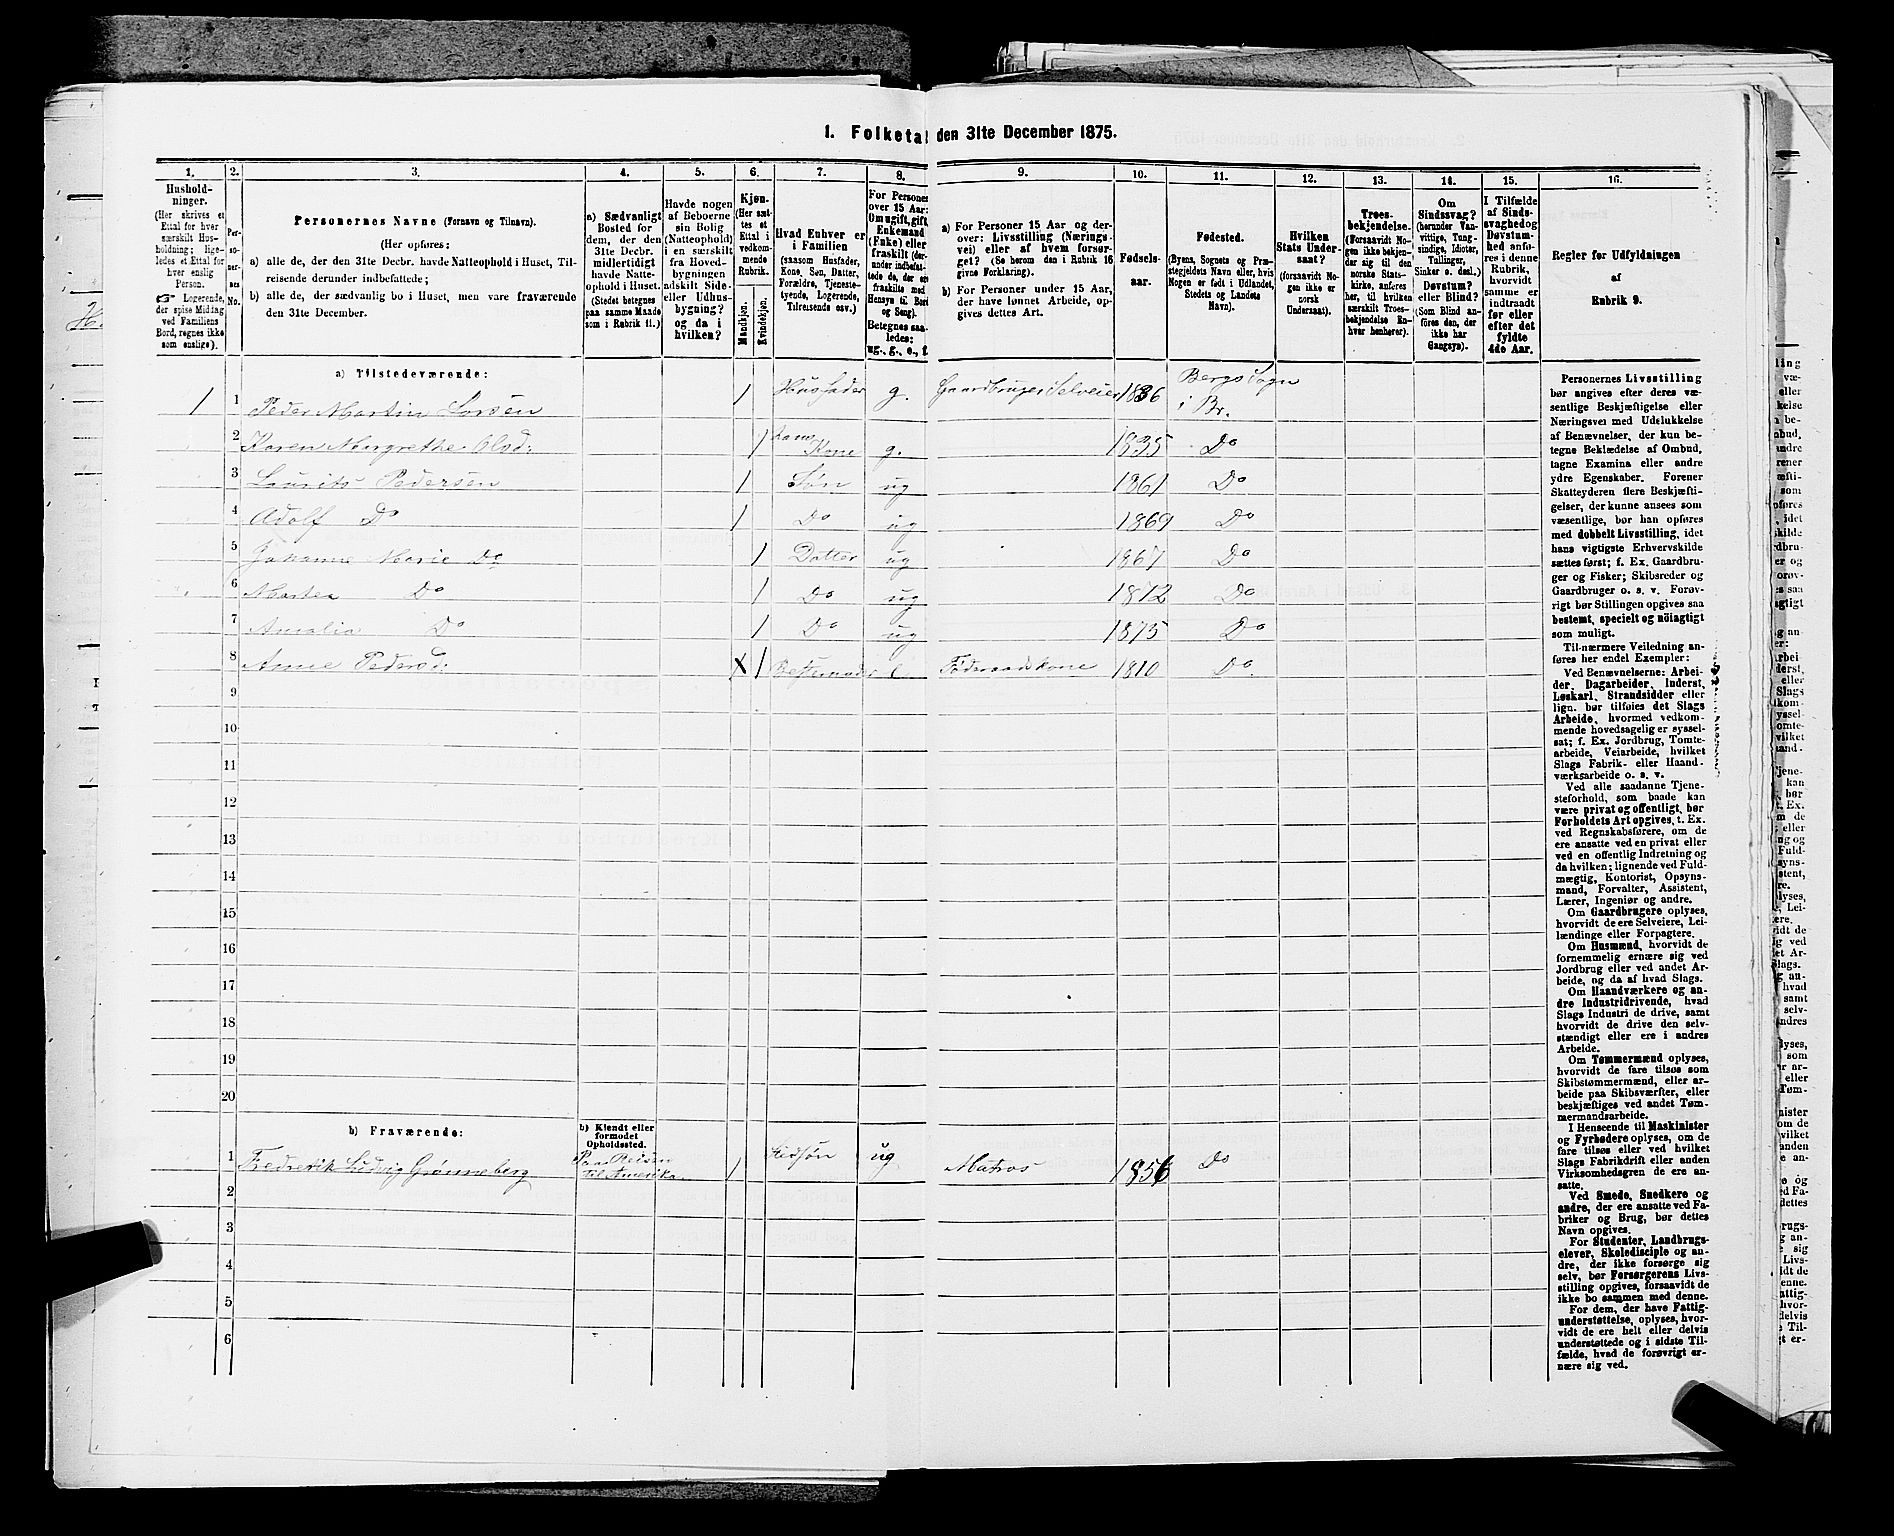 1. Folketal den 31te December 1875.
1. 2. 3. 4. 5. 6. 7. 8. 9. 10. 11. 12. 13. 14. 15. 16.
Hushold-
ninger.
(Her skrives et
Ettal for hver
særskilt Hus-
holdning; lige-
ledes et Ettal for
hver enslig
Person.
☞ Logerende,
der spise Middag
ved Familiens
Bord, regnes ikke
som enslige).
Per-
so-
ner-
nes
No.
Personernes Navne (Fornavn og Tilnavn).
(Her opføres:
a) alle de, der den 31te Decbr. havde Natteophold i Huset, Til-
reisende derunder indbefattede;
b) alle de, der sædvanlig bo i Huset, men vare fraværende
den 31te December.
a) Sædvanligt
Bosted for
dem, der den
31te Decbr.
midlertidigt
havde Natte-
ophold i Huset.
(Stedet betegnes
paa samme Maade
som i Rubrik 11.)
Havde nogen
af Beboerne
sin Bolig
(Natteophold)
i en særskilt
fra Hoved-
bygningen
adskilt Side-
eller Udhus-
bygning?
og da i
hvilken?
Kjøn.
(Her sæt-
tes et
Ettal i
vedkom-
mende
Rubrik.
Mandkjøn.
Kvindekjøn.
Hvad Enhver er
i Familien
(saasom Husfader,
Kone, Søn, Datter,
Forældre, Tjeneste-
tyende, Logerende,
Tilreisende osv.)
For Personer
over 15 Aar:
Om ugift, gift,
Enkemand
(Enke) eller
fraskilt (der-
under indbefat-
tede de, der ere
fraskilte med
Hensyn til Bord
og Seng).
Betegnes saa-
ledes:
ug., g., e., f.
a) For Personer 15 Aar og der-
over: Livsstilling (Nærings-
vei) eller af hvem forsør-
get? (Se herom den i Rubrik 16
givne Forklaring).
b) For Personer under 15 Aar,
der have lønnet Arbeide, op-
gives dettes Art.
Fødsels-
aar.
Fødested.
(Byens, Sognets og Præ-
stegjeldets Navn eller, hvis
Nogen er født i Udlandet,
Stedets og Landets
Navn).
Hvilken
Stats Under-
saat?
(forsaavidt No-
gen ikke er
norsk
Undersaat).
Troes-
bekjendelse.
(Forsaavidt No-
gen ikke bekjen-
der sig til den
norske Stats-
kirke, anføres
her, til hvilken
særskilt Troes-
bekjendelse En-
hver henhører).
Om
Sindssvag?
(herunder Van-
vittige, Tung-
sindige, Idioter,
Tullinger,
Sinker o. desl.)
Døvstum?
eller Blind?
(Som Blind an-
føres den, der
ikke har
Gangsyn).
I Tilfælde
af Sinds-
svaghed og
Døvstum-
hed anfø-
res i denne
Rubrik,
hvorvidt
samme er
indtraadt
før eller
efter det
fyldte
4de Aar.
Regler før Udfyldningen
af
Rubrik 9.
a) Tilstedeværende:
1 1 Peder Martin Larsen 1 Husfader g. Gaardbruger Selveier 1836 Bergs Sogn
i Br.
2 Karen Margrethe Olsd: 1 Kone g. 1835 Do
3 Laurits Pedersen 1 Søn ug 1861 Do
4 Adolf Do 1 Do ug 1869 Do
5 Johanne Marie Do 1 Datter ug 1867 Do
6 Marthea Do 1 Do ug 1872 Do
7 Amalia Do 1 Do ug 1875 Do
8 Anne Pedersd: X 1 Bestemoder e Føderaadskone 1810 Do.
9
10
11
12
13
14
15
16
17
18
19
20
b) Fraværende:
b) Kjendt eller
formodet
Opholdssted.
1 Fredrerik Ludvig Grønneberg Paa Reisen
til Amerika. 1 Stedsøn ug Matros 1856 Do
2
3
4
5
6
Personernes Livsstilling
bør angives efter deres væ-
sentlige Beskjæftigelse eller
Næringsvei med Udelukkelse
af Benævnelser, der kun be-
tegne Beklædelse af Ombud,
tagne Examina eller andre
ydre Egenskaber. Forener
Skatteyderen flere Beskjæfti-
gelser, der kunne ansees som
væsentlige, bør han opføres
med dobbelt Livsstilling, idet
hans vigtigste Erhvervskilde
sættes først; f. Ex. Gaardbru-
ger og Fisker; Skibsreder og
Gaardbruger o. s. v. Forøv-
rigt bør Stillingen opgives saa
bestemt, specielt og nöiagtigt
som muligt.
Til nærmere Veiledning an-
føres her endel Exempler:
Ved Benævnelserne: Arbei-
der, Dagarbeider, Inderst,
Løskarl, Strandsidder eller
lign. bør tilføies det Slags
Arbeide, hvormed vedkom-
mende hovedsagelig er syssel-
sat; f. Ex. Jordbrug, Tomte-
arbeide, Veiarbeide, hvilket
Slags Fabrik- eller Haand-
værksarbeide o. s. v.
Ved alle saadanne Tjene-
steforhold, som baade kan
være privat og offentligt, bør
Forholdets Art opgives, t. Ex.
ved Regnskabsførere, om de
ere ansatte ved en privat eller
ved en offentlig Indretning og
da hvilken; lignende ved Fuld-
mægtig, Kontorist, Opsyns-
mand, Forvalter, Assistent,
Lærer, Ingeniør og andre.
Om Gaardbrugere oplyses,
hvorvidt de ere Selveiere, Lei-
lændinge eller Forpagtere.
Om Husmænd, hvorvidt de
fornemmelig ernære sig ved
Jordbrug eller ved andet Ar-
beide, og da af hvad Slags.
Om Haandværkere og an-
dre Industridrivende, hvad
Slags Industri de drive, samt
hvorvidt de drive den selv-
stændigt eller ere i andres
Arbeide.
Om Tømmermænd oplyses,
hvorvidt de fare tilsøs som
Skibstømmermænd, eller ar-
beide paa Skibsværfter, eller
beskjæftiges ved andet Tøm-
mermandsarbeide.
I Henseende til Maskinister
og Fyrbødere oplyses, om de
fare tilsøs eller ved hvilket
Slags Fabrikdrift eller anden
Virksomhedsgren de ere an-
satte.
Ved Smede, Snedkere og
andre, der ere ansatte ved Fa-
briker og Brug, bør dettes
Navn opgives.
For Studenter, Landbrugs-
elever, Skoledisciple og an-
dre, der ikke forsørge sig
selv, bør Forsørgerens Livs-
stilling opgives, forsaavidt de
ikke bo sammen med denne.
For dem, der have Fattig-
understøttelse, oplyses, hvor-
vidt de ere helt eller delvis
understøttede og i sidste Til-
fælde, hvad de forøvrigt er-
nære sig ved.